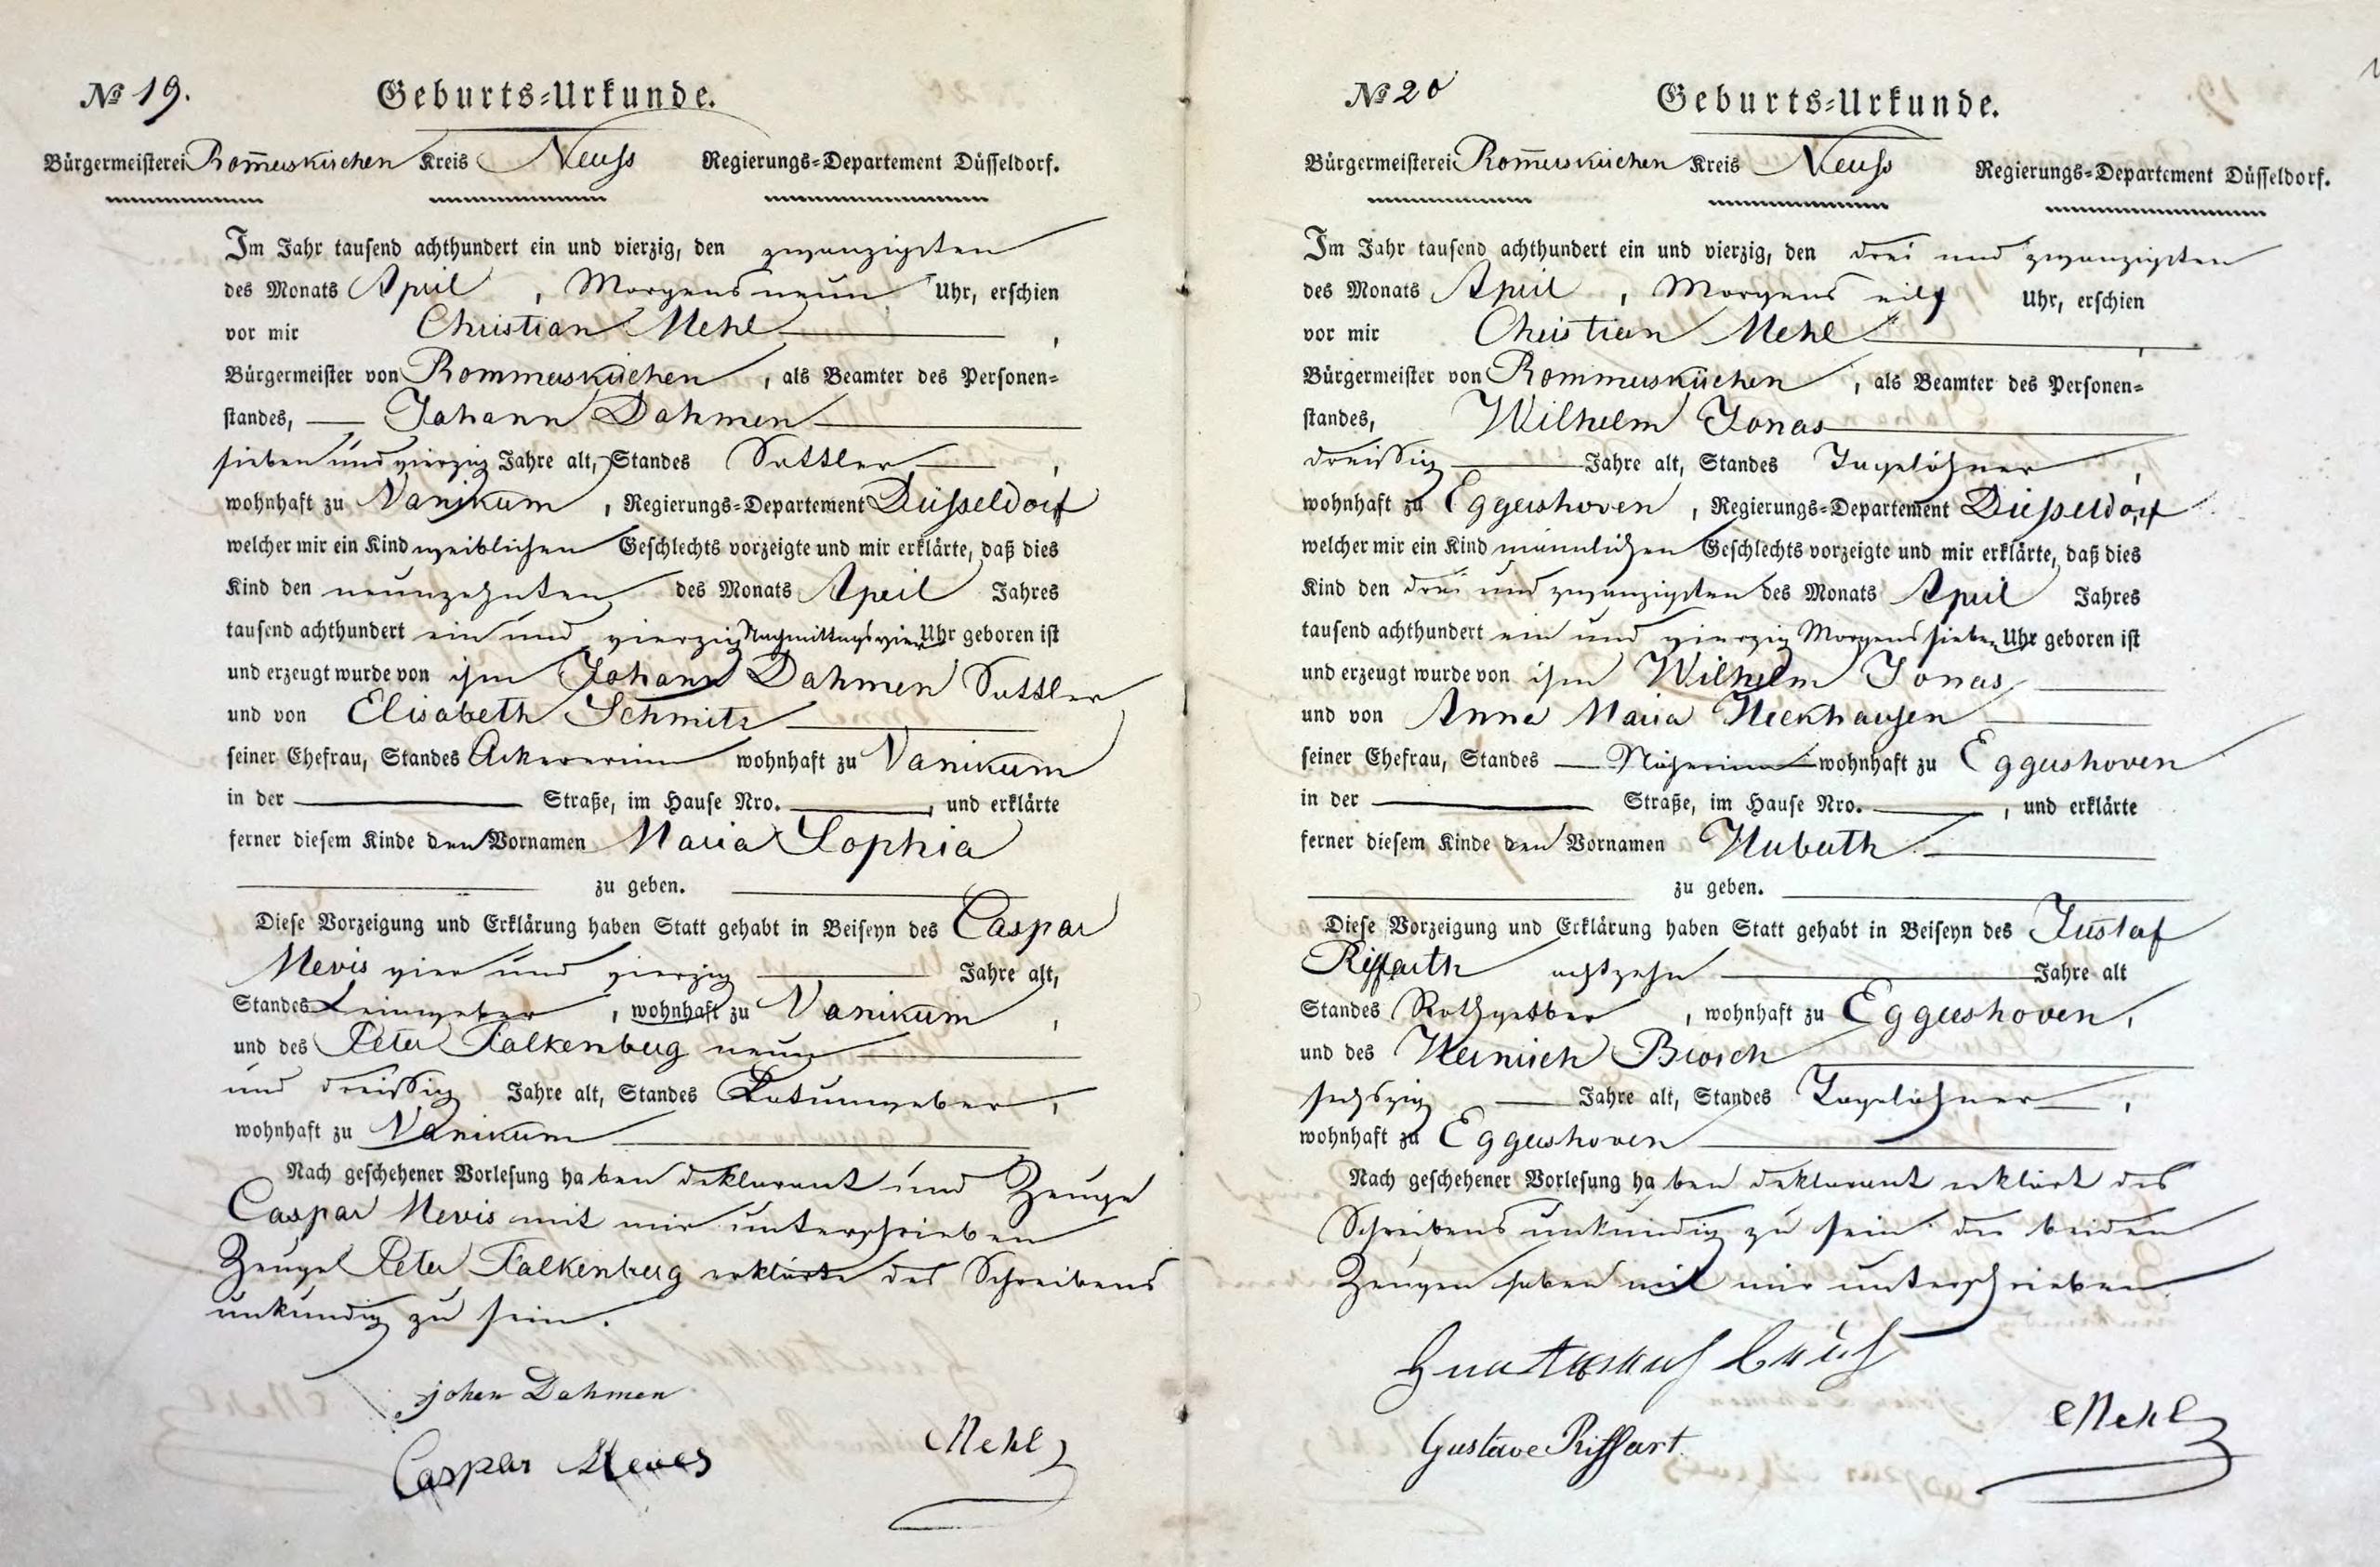 № 19.
Geburts-Urkunde.
Bürgermeisterei Rom̅erskirchen Kreis Neuss Regierungs-Departement Düsseldorf.
Im Jahr tausend achthundert ein und vierzig, den zwanzigsten
des Monats April, Morgens neun Uhr, erschien
vor mir Christian Mehl,
Bürgermeister von Rommerskirchen, als Beamter des Personen-
standes, Johann Dahmen
sieben und vierzig Jahre alt, Standes Sattler,
wohnhaft zu Vanikum, Regierungs-Departement Düsseldorf
welcher mir ein Kind weiblichen Geschlechts vorzeigte und mir erklärte, daß dies
Kind den neunzehnten des Monats April Jahres
tausend achthundert ein und vierzig Nachmittags vier Uhr geboren ist
und erzeugt wurde von ihm Johann Dahmen Sattler
und von Elisabeth Schmitz
seiner Ehefrau, Standes Ackererin wohnhaft zu Vanikum
in der Straße, im Hause Nro. , und erklärte
ferner diesem Kinde den Vornamen Maria Sophia
zu geben.
Diese Vorzeigung und Erklärung haben Statt gehabt in Beiseyn des Caspar
Mevis vier und vierzig Jahre alt,
Standes Leinweber, wohnhaft zu Vanikum,
und des Peter Falkenberg neun
und dreissig Jahre alt, Standes Katunweber,
wohnhaft zu Vanikum
Nach geschehener Vorlesung haben deklarant und Zeuge
Caspar Mevis mit mir unterschrieben
Zeuge Peter Falkenberg erklärte des Schreibens
unkundig zu sein.
johan Dahmen
Caspar Meves
CMehl
№ 20
Geburts-Urkunde.
Bürgermeisterei Rom̅erskirchen Kreis Neuss Regierungs-Departement Düsseldorf.
Im Jahr tausend achthundert ein und vierzig, den drei und zwanzigsten
des Monats April, Morgens eilf Uhr, erschien
vor mir Christian Mehl,
Bürgermeister von Rommerskirchen, als Beamter des Personen-
standes, Wilhelm Jonas
dreissig Jahre alt, Standes Tagelöhner,
wohnhaft zu Eggershoven, Regierungs-Departement Düsseldorf
welcher mir ein Kind männlichen Geschlechts vorzeigte und mir erklärte, daß dies
Kind den drei und zwanzigsten des Monats April Jahres
tausend achthundert ein und vierzig Morgens sieben Uhr geboren ist
und erzeugt wurde von ihm Wilhelm Jonas
und von Anna Maria Heckhausen
seiner Ehefrau, Standes Näherin wohnhaft zu Eggershoven
in der Straße, im Hause Nro. , und erklärte
ferner diesem Kinde den Vornamen Huberth
zu geben.
Diese Vorzeigung und Erklärung haben Statt gehabt in Beiseyn des Gustaf
Riffarth achtzehn Jahre alt
Standes Rothgerber, wohnhaft zu Eggershoven,
und des Heinrich Broich
sechszig Jahre alt, Standes Tagelöhner,
wohnhaft zu Eggershoven
Nach geschehener Vorlesung haben deklarant erklärt des
Schreibens unkundig zu sein die beiden
Zeugen haben mit mir unterschrieben
Gustave Riffart.
CMehl